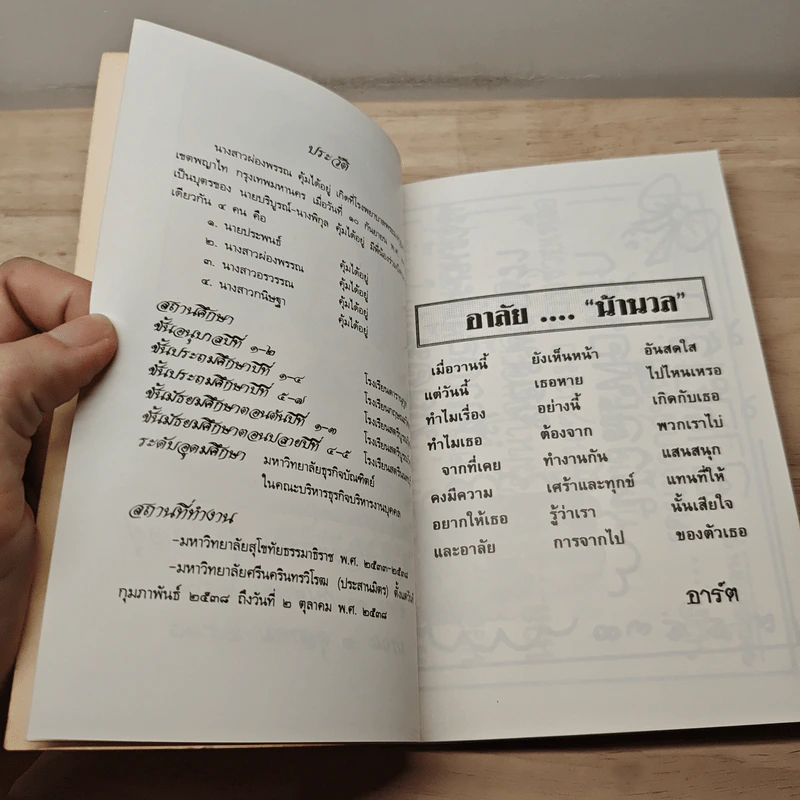 ประวัติ
นางสาวผ่องพรรณ คุ้มได้อยู่ เกิดที่โรงพยาบาล
เขตพญาไท กรุงเทพมหานคร เมื่อวันที่ ๑๐ กันยายน พ.ศ.
เป็นบุตรของ นายบริบูรณ์-นางพิกุล คุ้มได้อยู่ มีพี่น้องร่วม
เดียวกัน ๔ คน คือ
๑. นายประพนธ์ คุ้มได้อยู่
๒. นางสาวผ่องพรรณ คุ้มได้อยู่
๓. นางสาวอรวรรณ คุ้มได้อยู่
๔. นางสาวกนิษฐา คุ้มได้อยู่
สถานศึกษา
ชั้นอนุบาลปีที่ ๑-๒
ชั้นประถมศึกษาปีที่ ๑-๔ โรงเรียน
ชั้นประถมศึกษาปีที่ ๕-๗ โรงเรียน
ชั้นมัธยมศึกษาตอนต้นปีที่ ๑-๓ โรงเรียน
ชั้นมัธยมศึกษาตอนปลายปีที่ ๔-๕ โรงเรียน
ระดับอุดมศึกษา มหาวิทยาลัยธุรกิจบัณฑิตย์
ในคณะบริหารธุรกิจบริหารงานบุคคล
สถานที่ทำงาน
-มหาวิทยาลัยสุโขทัยธรรมาธิราช พ.ศ. ๒๕๓๓-๒๕๓๘
-มหาวิทยาลัยศรีนครินทรวิโรฒ (ประสานมิตร) ตั้งแต่
กุมภาพันธ์ ๒๕๓๘ ถึงวันที่ ๒ ตุลาคม พ.ศ. ๒๕๓๘
อาลัย .... “น้านวล”
เมื่อวานนี้ ยังเห็นหน้า อันสดใส
แต่วันนี้ เธอหาย ไปไหนเหรอ
ทำไมเรื่อง อย่างนี้ เกิดกับเธอ
ทำไมเธอ ต้องจาก พวกเราไป
จากที่เคย ทำงานกัน แสนสนุก
คงมีความ เศร้าและทุกข์ แทนที่ให้
อยากให้เธอ รู้ว่าเรา นั้นเสียใจ
และอาลัย การจากไป ของตัวเธอ
อาร์ต